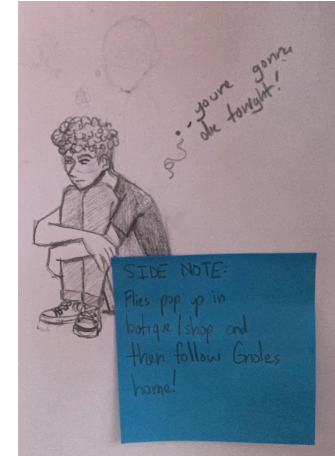 - youre gonna
die tonight!
SIDE NOTE:
Flies pop up in
botique/shop and
then follow Gnoles
home!